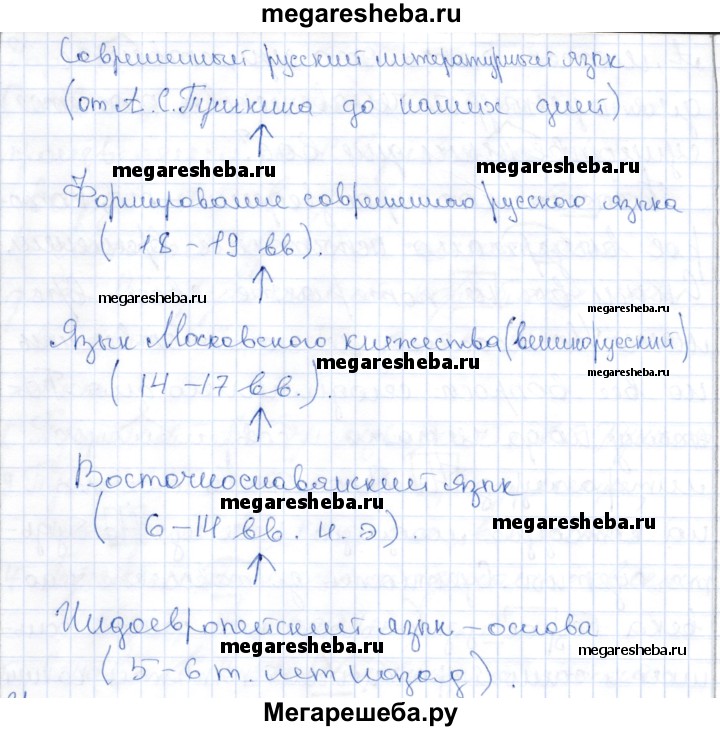 megaresheba.ru
Современный русский литературный язык
(от А.С.Пушкина до наших дней)
megaresheba.ru megaresheba.ru
Формирование современного русского языка
(18-19 вв).
megaresheba.ru megaresheba.ru
Язык Московского княжества (великорусский)
megaresheba.ru megaresheba.ru
(14-17 вв.).
Восточнославянский язык
megaresheba.ru megaresheba.ru
(6-14 вв. н.э).
Индоевропейский язык-основа
megaresheba.ru megaresheba.ru
(5-6 т. лет назад).
Мегарешеба.ру